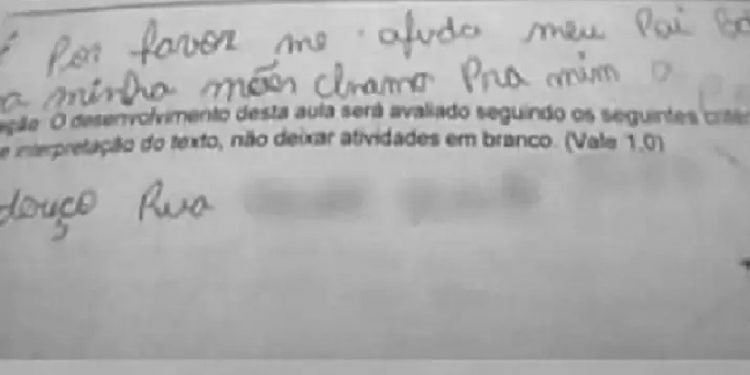 Por favor me ajuda meu Pai
a minha mães chramo Pra mim o
O desenvolvimento desta aula será avaliado seguindo os seguintes
e interpretação do texto, não deixar atividades em branco. (Vale 1.0)
Rua